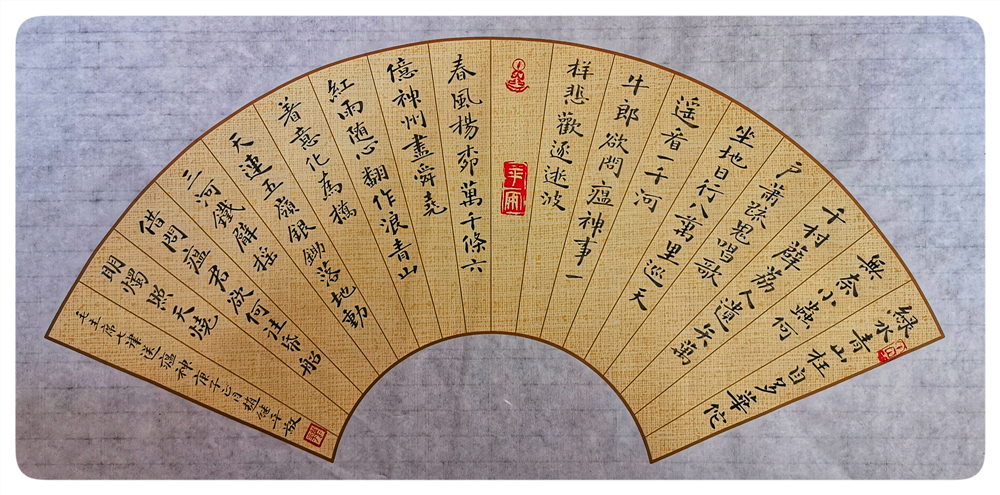 綠水青山枉自多華佗
無奈小蟲何
千村薜荔人遺矢萬
戶蕭疏鬼唱歌
坐地日行八萬里巡天
遥看一千河
牛郎欲問瘟神事一
样悲歡逐逝波
春風楊柳萬千條六
億神州盡舜堯
紅雨随心翻作浪青山
着意化為橋
天連五嶺銀鋤落地動
三河鐵臂摇
借問瘟君欲何往帋船
明燭照天燒
毛主席七律送瘟神庚子月健平敬